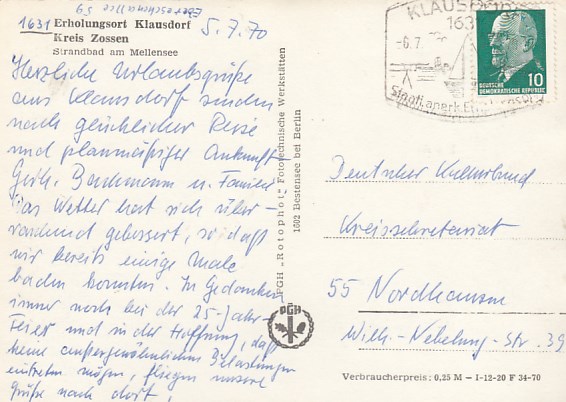 Ebereschenallee 59
1631 Erholungsort Klausdorf
Kreis Zossen
Strandbad am Mellensee
5.7.70
Herzliche Urlaubsgrüße
aus Klausdorf senden
nach glücklicher Reise
und planmäßiger Ankunft
Gerh. Bachmann u. Familie
Das Wetter hat sich über-
raschend gebessert, so daß
wir bereits einige Male
baden konnten. In Gedanken
immer noch bei der 25-Jahr-
Feier und in der Hoffnung, daß
keine außergewöhnlichen Belastungen
eintreten mögen, fliegen unsere
Grüße nach dort!
PGH „Rotophot“ Fototechnische Werkstätten
1602 Bestensee bei Berlin
PGH
KLAUSDORF
1631
-6.7
Staatl. anerk.
10
DEUTSCHE
DEMOKRATISCHE REPUBLIK
Deutscher Kulturbund
Kreissekretariat
55 Nordhausen
Wilh.-Nebelung-Str. 39
Verbraucherpreis: 0,25 M – I-12-20 F 34-70